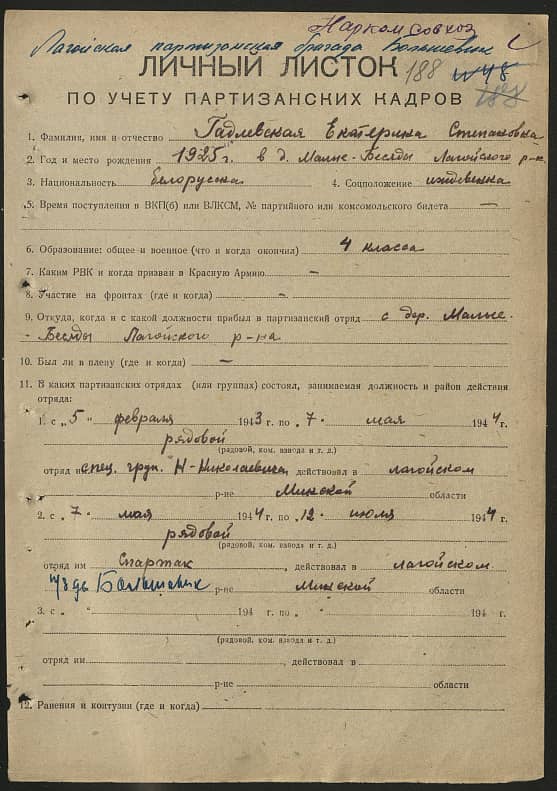 Наркомсовхоз
Лагойская партизанская бригада Большевик
ЛИЧНЫЙ ЛИСТОК 188 48
ПО УЧЕТУ ПАРТИЗАНСКИХ КАДРОВ 188
1. Фамилия, имя и отчество Гадлевская Екатерина Степановна
2. Год и место рождения 1925 г. в д. Малые-Беседы Лагойского р-на
3. Национальность белорусска 4. Соцположение иждевенка
5. Время поступления в ВКП(б) или ВЛКСМ, № партийного или комсомольского билета —
6. Образование: общее и военное (что и когда окончил) 4 класса
7. Каким РВК и когда призван в Красную Армию —
8. Участие на фронтах (где и когда) —
9. Откуда, когда и с какой должности прибыл в партизанский отряд с дер. Малые-
- Беседы Лагойского р-на
10. Был ли в плену (где и когда) —
11. В каких партизанских отрядах (или группах) состоял, занимаемая должность и район действия
отряда:
1. с „5 “ февраля 1943 г. по „7 “ мая 1944 г.
рядовой
(рядовой, ком. взвода и т. д.)
отряд им спец. груп. Н-Николаевича действовал в лагойском
р-не Минской области
2. с „7 “ мая 1944 г. по „12 “ июля 1944 г.
рядовой
(рядовой, ком. взвода и т. д.)
отряд им Спартак, действовал в лагойском
Большевик р-не минской области
3. с „ “ 194 г. по „ “ 194 г.
(рядовой, ком. взвода и т. д.)
отряд им , действовал в
р-не области
12. Ранения и контузии (где и когда)